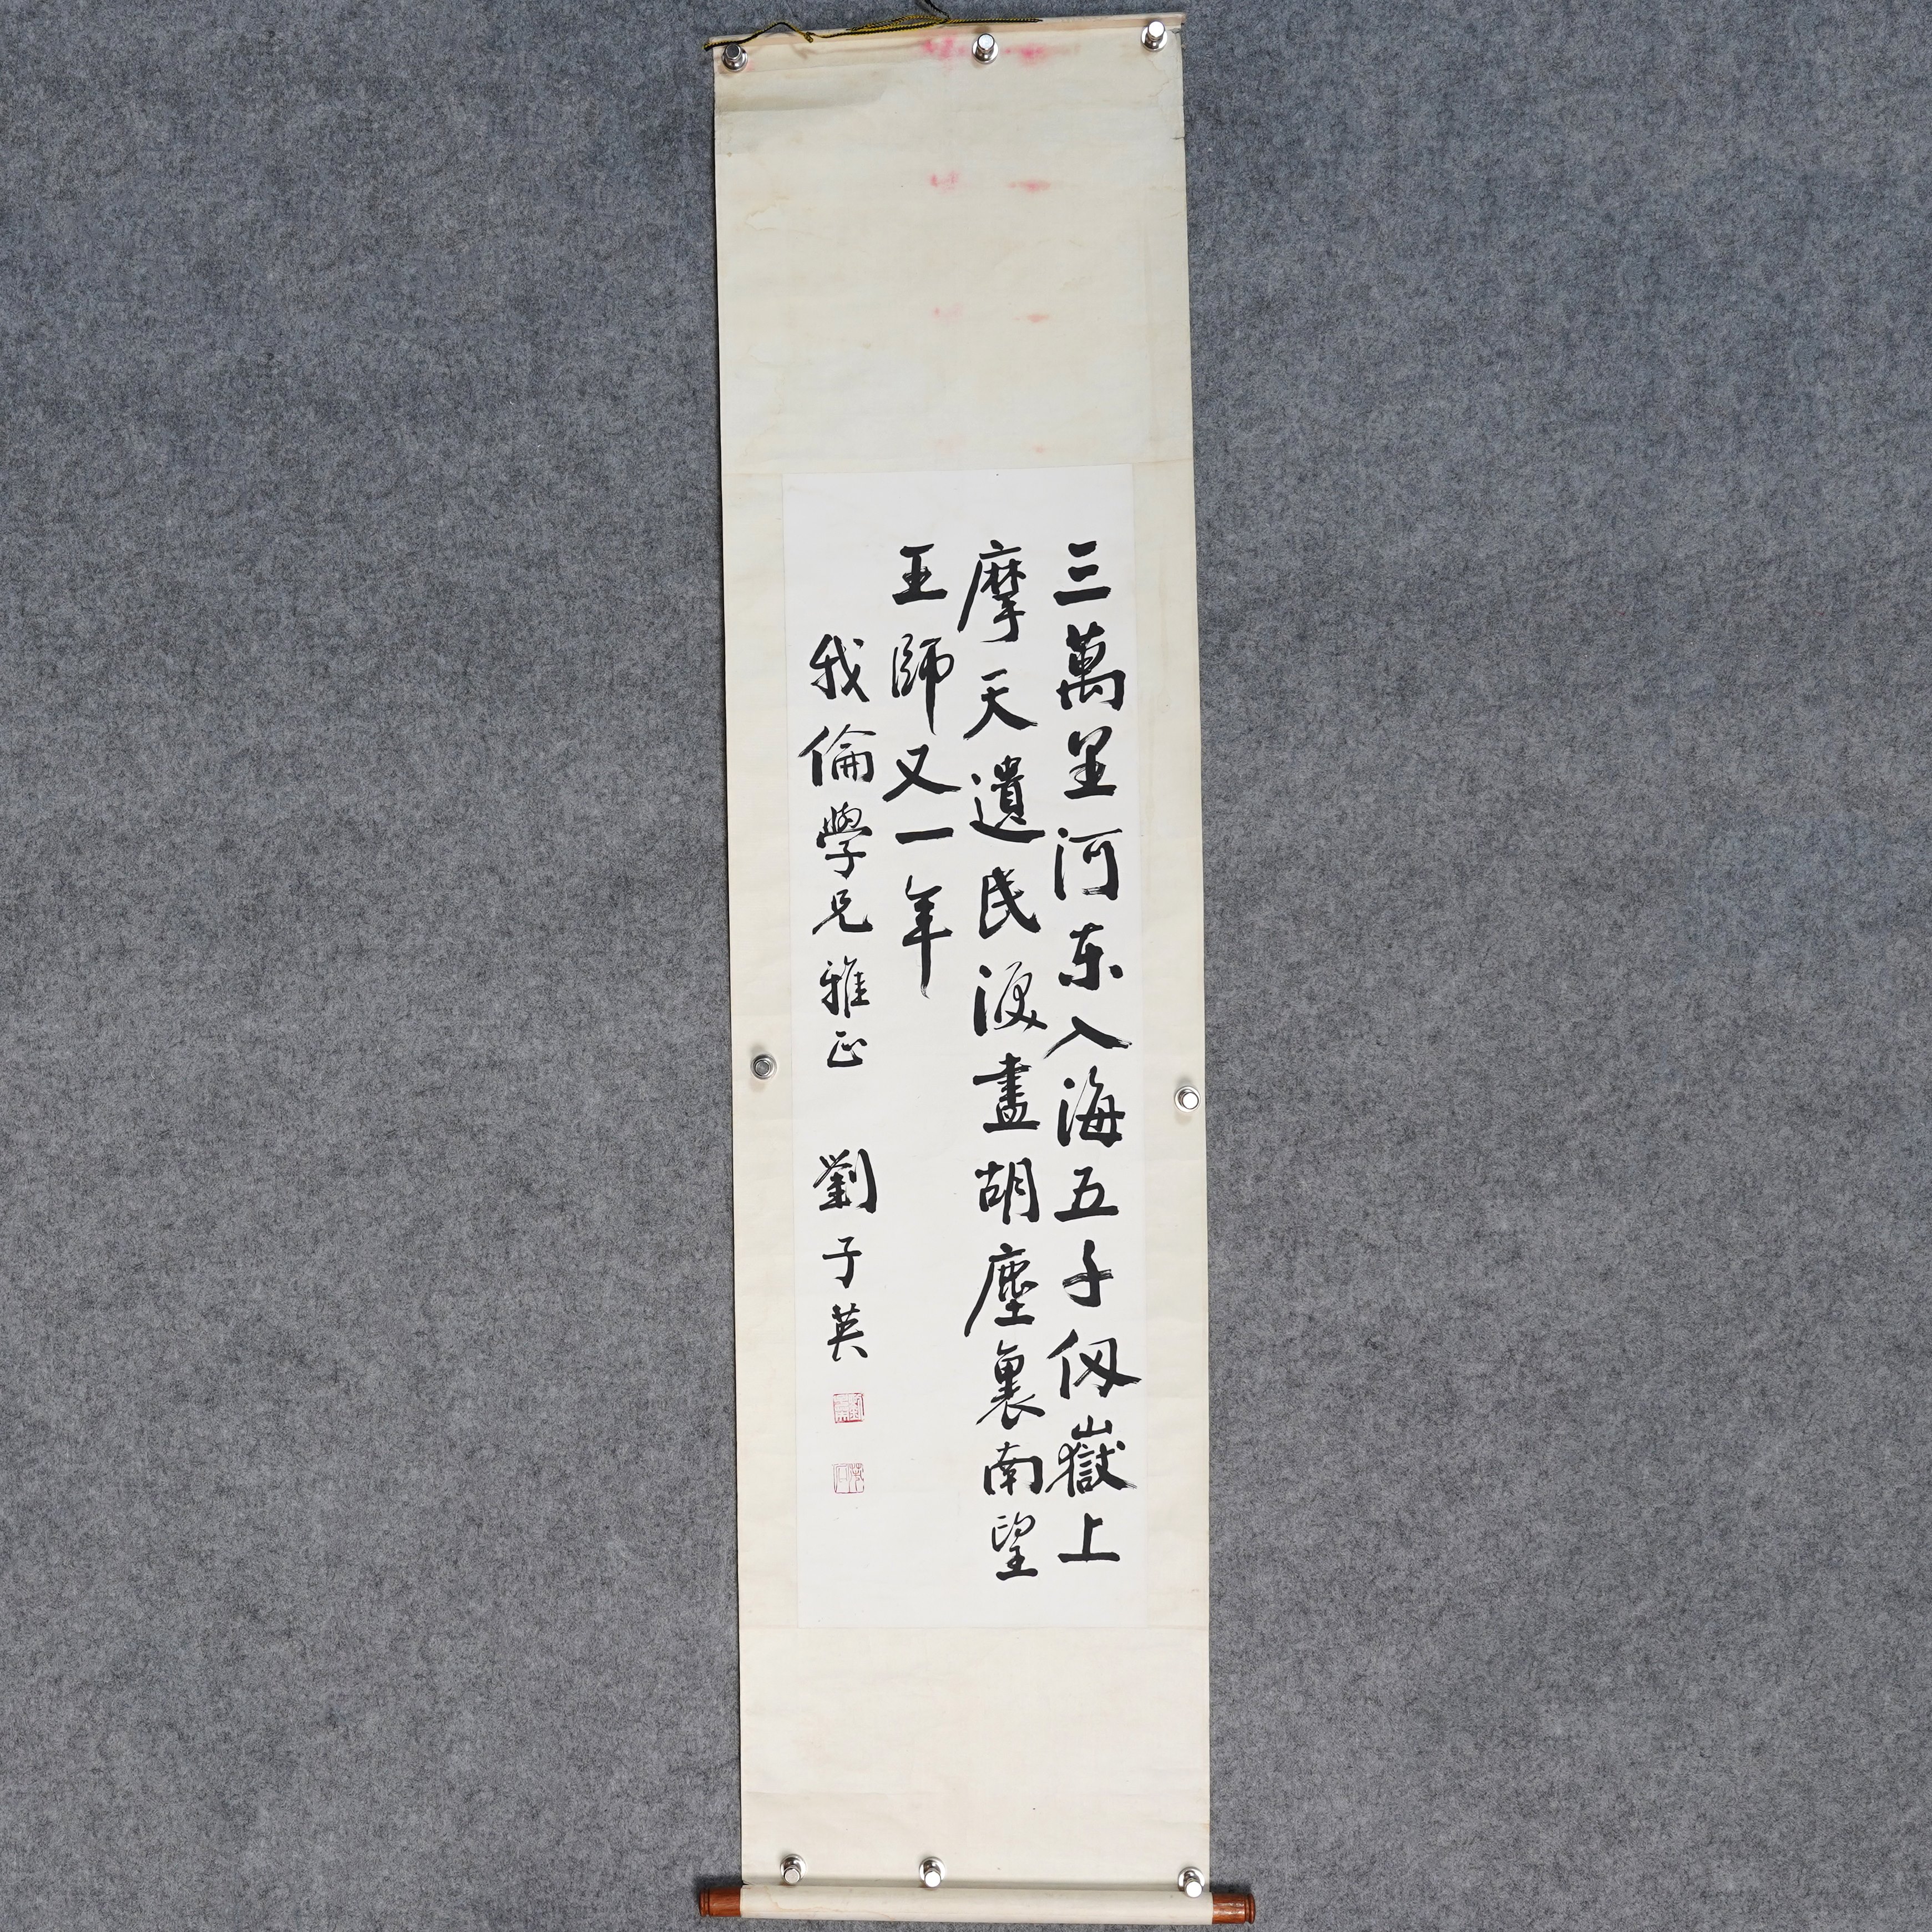 三萬里河东入海五千仞嶽上
摩天遺民淚盡胡塵裏南望
王師又一年
我倫學兄雅正 劉子英